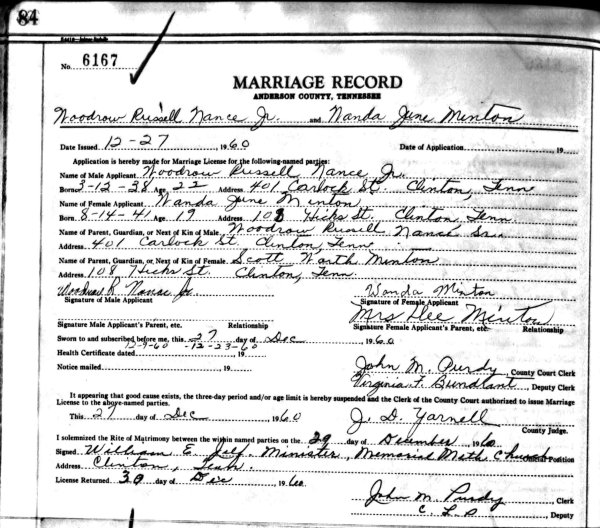 84
No. 6167
MARRIAGE RECORD
ANDERSON COUNTY, TENNESSEE
Woodrow Russell Nance Jr. and Wanda June Minton
Date Issued 12-27 1960 Date of Application 19
Application is hereby made for Marriage License for the following-named parties:
Name of Male Applicant Woodrow Russell Nance, Jr.
Born 3-12-38 Age 22 Address 401 Carlock St. Clinton, Tenn
Name of Female Applicant Wanda June Minton
Born 8-14-41 Age 19 Address 108 Hicks St. Clinton, Tenn.
Name of Parent, Guardian, or Next of Kin of Male Woodrow Russell Nance Sr.
Address 401 Carlock St. Clinton, Tenn
Name of Parent, Guardian, or Next of Kin of Female Scott Worth Minton
Address 108 Hicks St. Clinton, Tenn.
Woodrow R. Nance Jr. Wanda Minton
Signature of Male Applicant Signature of Female Applicant
Mrs Dee Minton
Signature Male Applicant's Parent, etc. Relationship Signature Female Applicant's Parent, etc. Relationship
Sworn to and subscribed before me, this 27 day of Dec 1960
Health Certificate dated 12-9-60 -12-23-60
John M. Purdy, County Court Clerk
Notice mailed 19 Virginia F. Deputy Clerk
It appearing that good cause exists, the three-day period and/or age limit is hereby suspended and the Clerk of the County Court authorized to issue Marriage
License to the above-named parties.
This 27 day of Dec 1960 J. D. Yarnell
County Judge.
I solemnized the Rite of Matrimony between the within named parties on the 29 day of December 1960
Signed William E. Minister, Memorial Meth Church Official Position
Address Clinton, Tenn.
License Returned 30 day of Dec 1960
John M. Purdy Clerk
Deputy